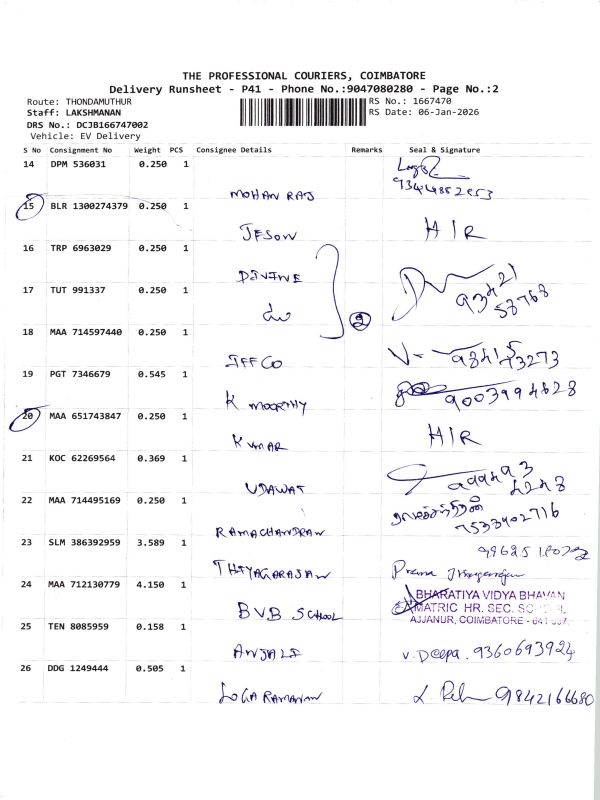 THE PROFESSIONAL COURIERS, COIMBATORE
Delivery Runsheet - P41 - Phone No.:9047080280 - Page No.:2
Route: THONDAMUTHUR
RS No.: 1667470
Staff: LAKSHMANAN
RS Date: 06-Jan-2026
DRS No.: DCJB166747002
Vehicle: EV Delivery
S No Consignment No Weight PCS Consignee Details Remarks Seal & Signature
14 DPM 536031 0.250 1
MOHAN RAJ
15 BLR 1300274379 0.250 1
JESON H/R
16 TRP 6963029 0.250 1
DIVINE
17 TUT 991337 0.250 1
93421
58768
do
2
18 MAA 714597440 0.250 1
IFFCO
19 PGT 7346679 0.545 1
K MOORTHY 9003994628
20 MAA 651743847 0.250 1
KUMAR H/R
21 KOC 62269564 0.369 1
UDAWAT
22 MAA 714495169 0.250 1
ராமச்சந்திரன்
7533402716
RAMACHANDRAN
23 SLM 386392959 3.589 1
THIYAGARAJAN
24 MAA 712130779 4.150 1
BHARATIYA VIDYA BHAVAN
MATRIC HR. SEC. SCHOOL
AJJANUR, COIMBATORE - 641 007.
BVB SCHOOL
25 TEN 8085959 0.158 1
ANJALI V. Deepa. 9360693924
26 DDG 1249444 0.505 1
LOGARAMANAN 9842166680